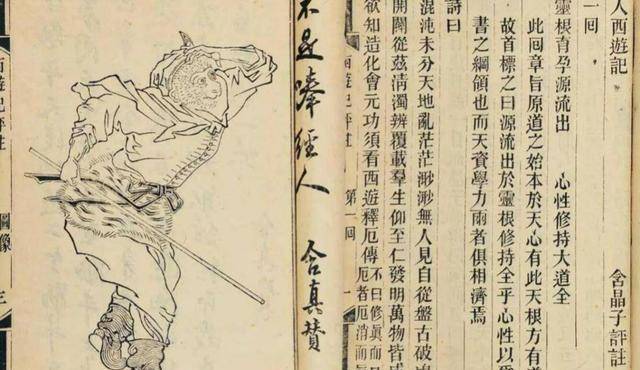 人西遊記
含晶子評註
一回
靈根育孕源流出　心性修持大道全
此回章旨原道之始本於天心有此天根方有道
故首標之曰源流出於靈根修持全乎心性以爲
書之綱領也而天資學力兩者俱相濟焉
詩曰
混沌未分天地亂茫茫渺渺無人見自從盤古破
開闢從茲清濁辨覆載羣生仰至仁發明萬物皆
欲知造化會元功須看西遊釋厄傳
不曰修眞而曰
厄者厄消而
西遊記評註　第一回
不是唪經人
含真贊
西遊記評註　圖像　三